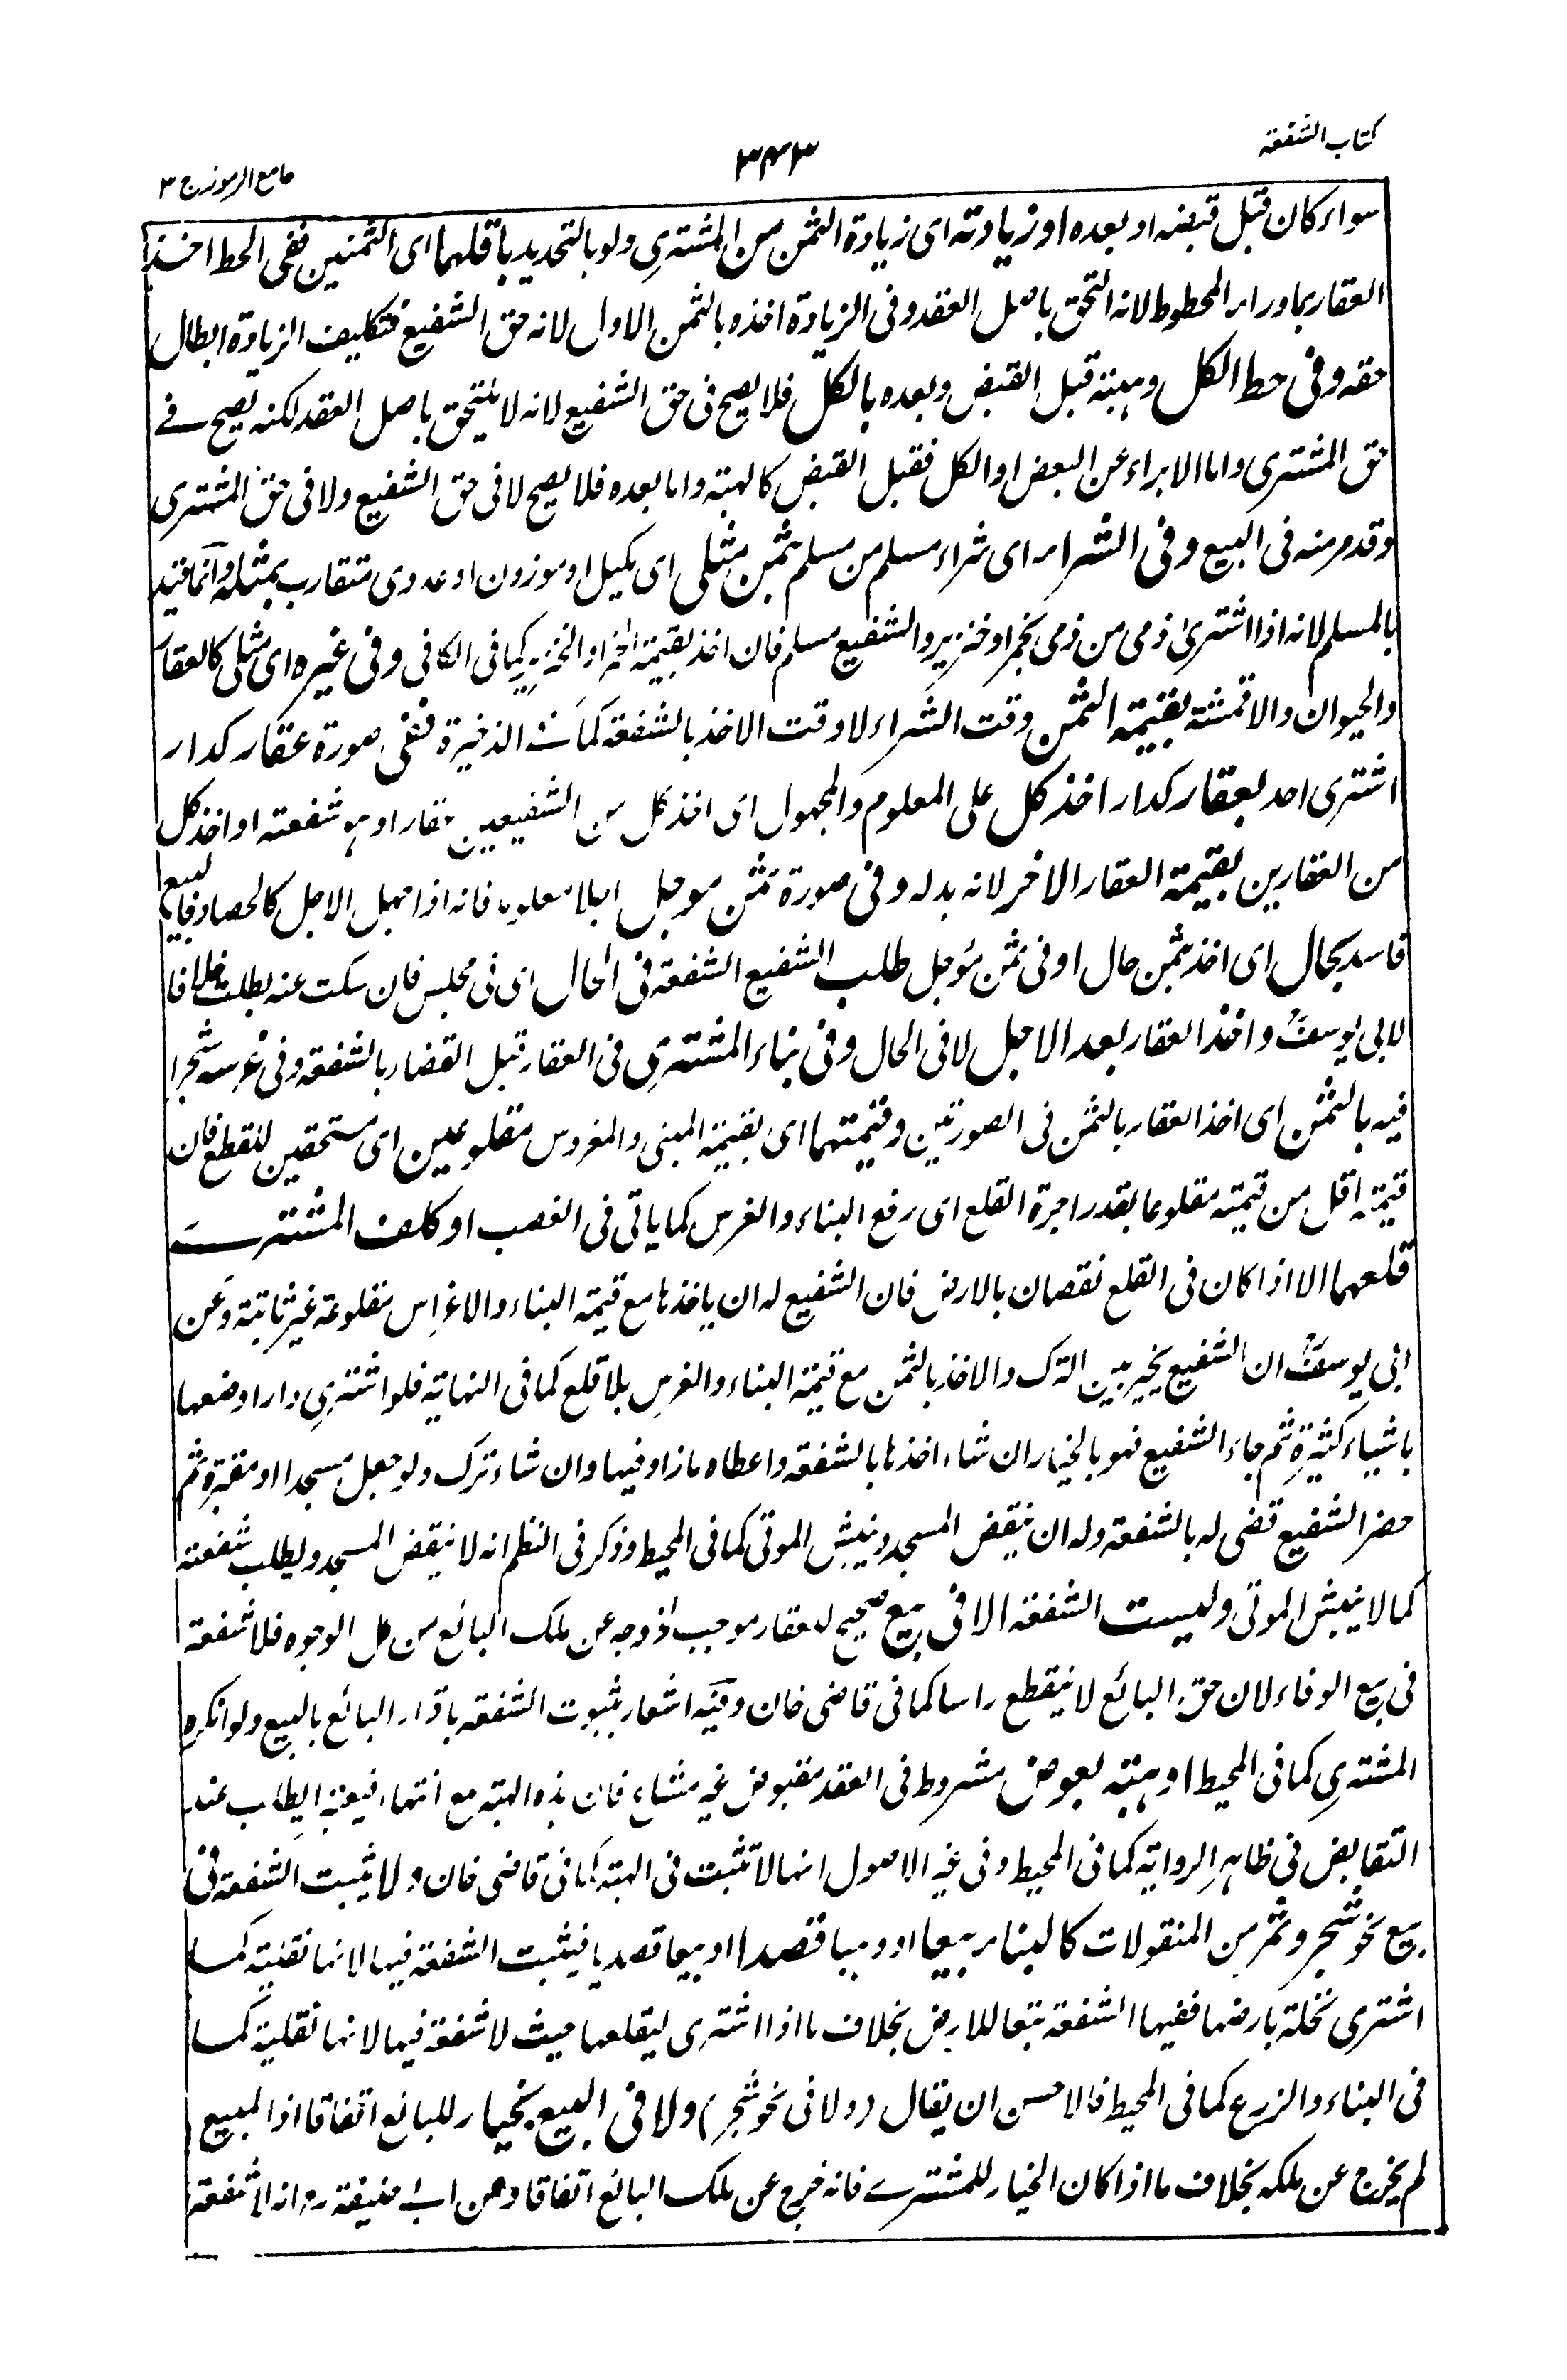 كتاب الشفعة
٣٤٣
جامع الرموز ج ٣
سواء كان قبل قبضه او بعده او زيادته اى زيادة الثمن من المشترى ولو بالتجديد باقلهما اى الثمنين ففى الحط اخذ
العقار بما وراء المحطوط لانه التحق باصل العقد وفى الزيادة اخذه بالثمن الاول لانه حق الشفيع فتكليف الزيادة ابطال
حقه وفى حط الكل وهبته قبل القبض وبعده بالكل فلا يصح فى حق الشفيع لانه لا يلتحق باصل العقد لكنه يصح فے
حق المشترى واما الابراء عن البعض او الكل فقبل القبض كالهبة واما بعده فلا يصح لا فى حق الشفيع ولا فى حق المشترى
وقد مر منه فى البيع وفى الشراء اى شراء مسلم من مسلم بثمن مثلى اى مكيل او موزون او عددى متقارب بمثله وانما قيد
بالمسلم لانه اذا اشترى ذمى من ذمى بخمر او خنزير والشفيع مسلم فان اخذ بقيمة الخمر او الخنزير كما فى الكافى وفى غيره اى مثلى كالعقار
والحيوان والاقمشة بقيمة الثمن وقت الشراء لا وقت الاخذ بالشفعة كما فى الذخيرة ففى صورة عقار كدار
اشترى احد بعقار كدار اخذ كل على المعلوم والمجهول اى اخذ كل من الشفيعين عقارا هو شفعته او اخذ كل
من العقارين بقيمة العقار الاخر لانه بدله وفى صورة ثمن موجل اجلا معلوما فانه اذا جهل الاجل كالحصاد فالبيع
فاسد بحال اى اخذ بثمن حال او فى ثمن مؤجل طلب الشفيع الشفعة فى الحال اى فى مجلس فان سكت عنه بطلت خلافا
لابى يوسف واخذ العقار بعد الاجل لا فى الحال وفى بناء المشترى فى العقار قبل القضاء بالشفعة وفى غرسه شجرا
فيه بالثمن اى اخذ العقار بالثمن فى الصورتين وقيمتهما اى بقيمة المبنى والمغروس مقلوعين اى مستحقين للقطع فان
قيمته اقل من قيمته مقلوعا بقدر اجرة القلع اى رفع البناء والغرس كما ياتى فى الغصب او كلف المشترے
قلعهما الا اذا كان فى القلع نقصان بالارض فان الشفيع له ان ياخذها مع قيمة البناء والاغراس مقلوعة غير ثابتة وعن
ابى يوسف ان الشفيع يخير بين الترك والاخذ بالثمن مع قيمة البناء والغرس بلا قلع كما فى النهاية فلو اشترى دارا وضعها
باشياء كثيرة ثم جاء الشفيع فهو بالخيار ان شاء اخذها بالشفعة واعطاه ما زاد فيها وان شاء ترك ولو جعل مسجدا او مقبرة ثم
حضر الشفيع قضى له بالشفعة وله ان ينقض المسجد وينبش الموتى كما فى المحيط وذكر فى النظم انه لا ينقض المسجد ويطلب شفعته
كما لا ينبش الموتى وليست الشفعة الا فى بيع صحيح لعقار موجب لخروجه عن ملك البائع من كل الوجوه فلا شفعة
فى بيع الوفاء لان حق البائع لا ينقطع راسا كما فى قاضى خان وفيه اشعار بثبوت الشفعة باقرار البائع بالبيع ولو انكره
المشترى كما فى المحيط او هبة بعوض مشروط فى العقد مقبوض غير مشاع فان هذه الهبة بيع انتهاء فيعتبر الطلب عند
التقابض فى ظاهر الرواية كما فى المحيط وفى غير الاصول انها لا تثبت فى الهبة كما فى قاضى خان ولا يثبت الشفعة فى
بيع نحو شجر وثمر من المنقولات كالبناء بيعا او وهبا قصدا او بيعا قصديا فيثبت الشفعة فيها لانها نقلية كما
اشترى نخلة بارضها ففيها الشفعة تبعا للارض بخلاف ما اذا اشترى ليقلعها حيث لا شفعة فيها لانها نقلية كما
فى البناء والزرع كما فى المحيط فالاحسن ان يقال (ولا فى نحو شجر) ولا فى البيع بخيار للبائع اتفاقا اذ المبيع
لم يخرج عن ملكه بخلاف ما اذا كان الخيار للمشترے فانه خرج عن ملك البائع اتفاقا وعن ابى حنيفة رح انه لا شفعة